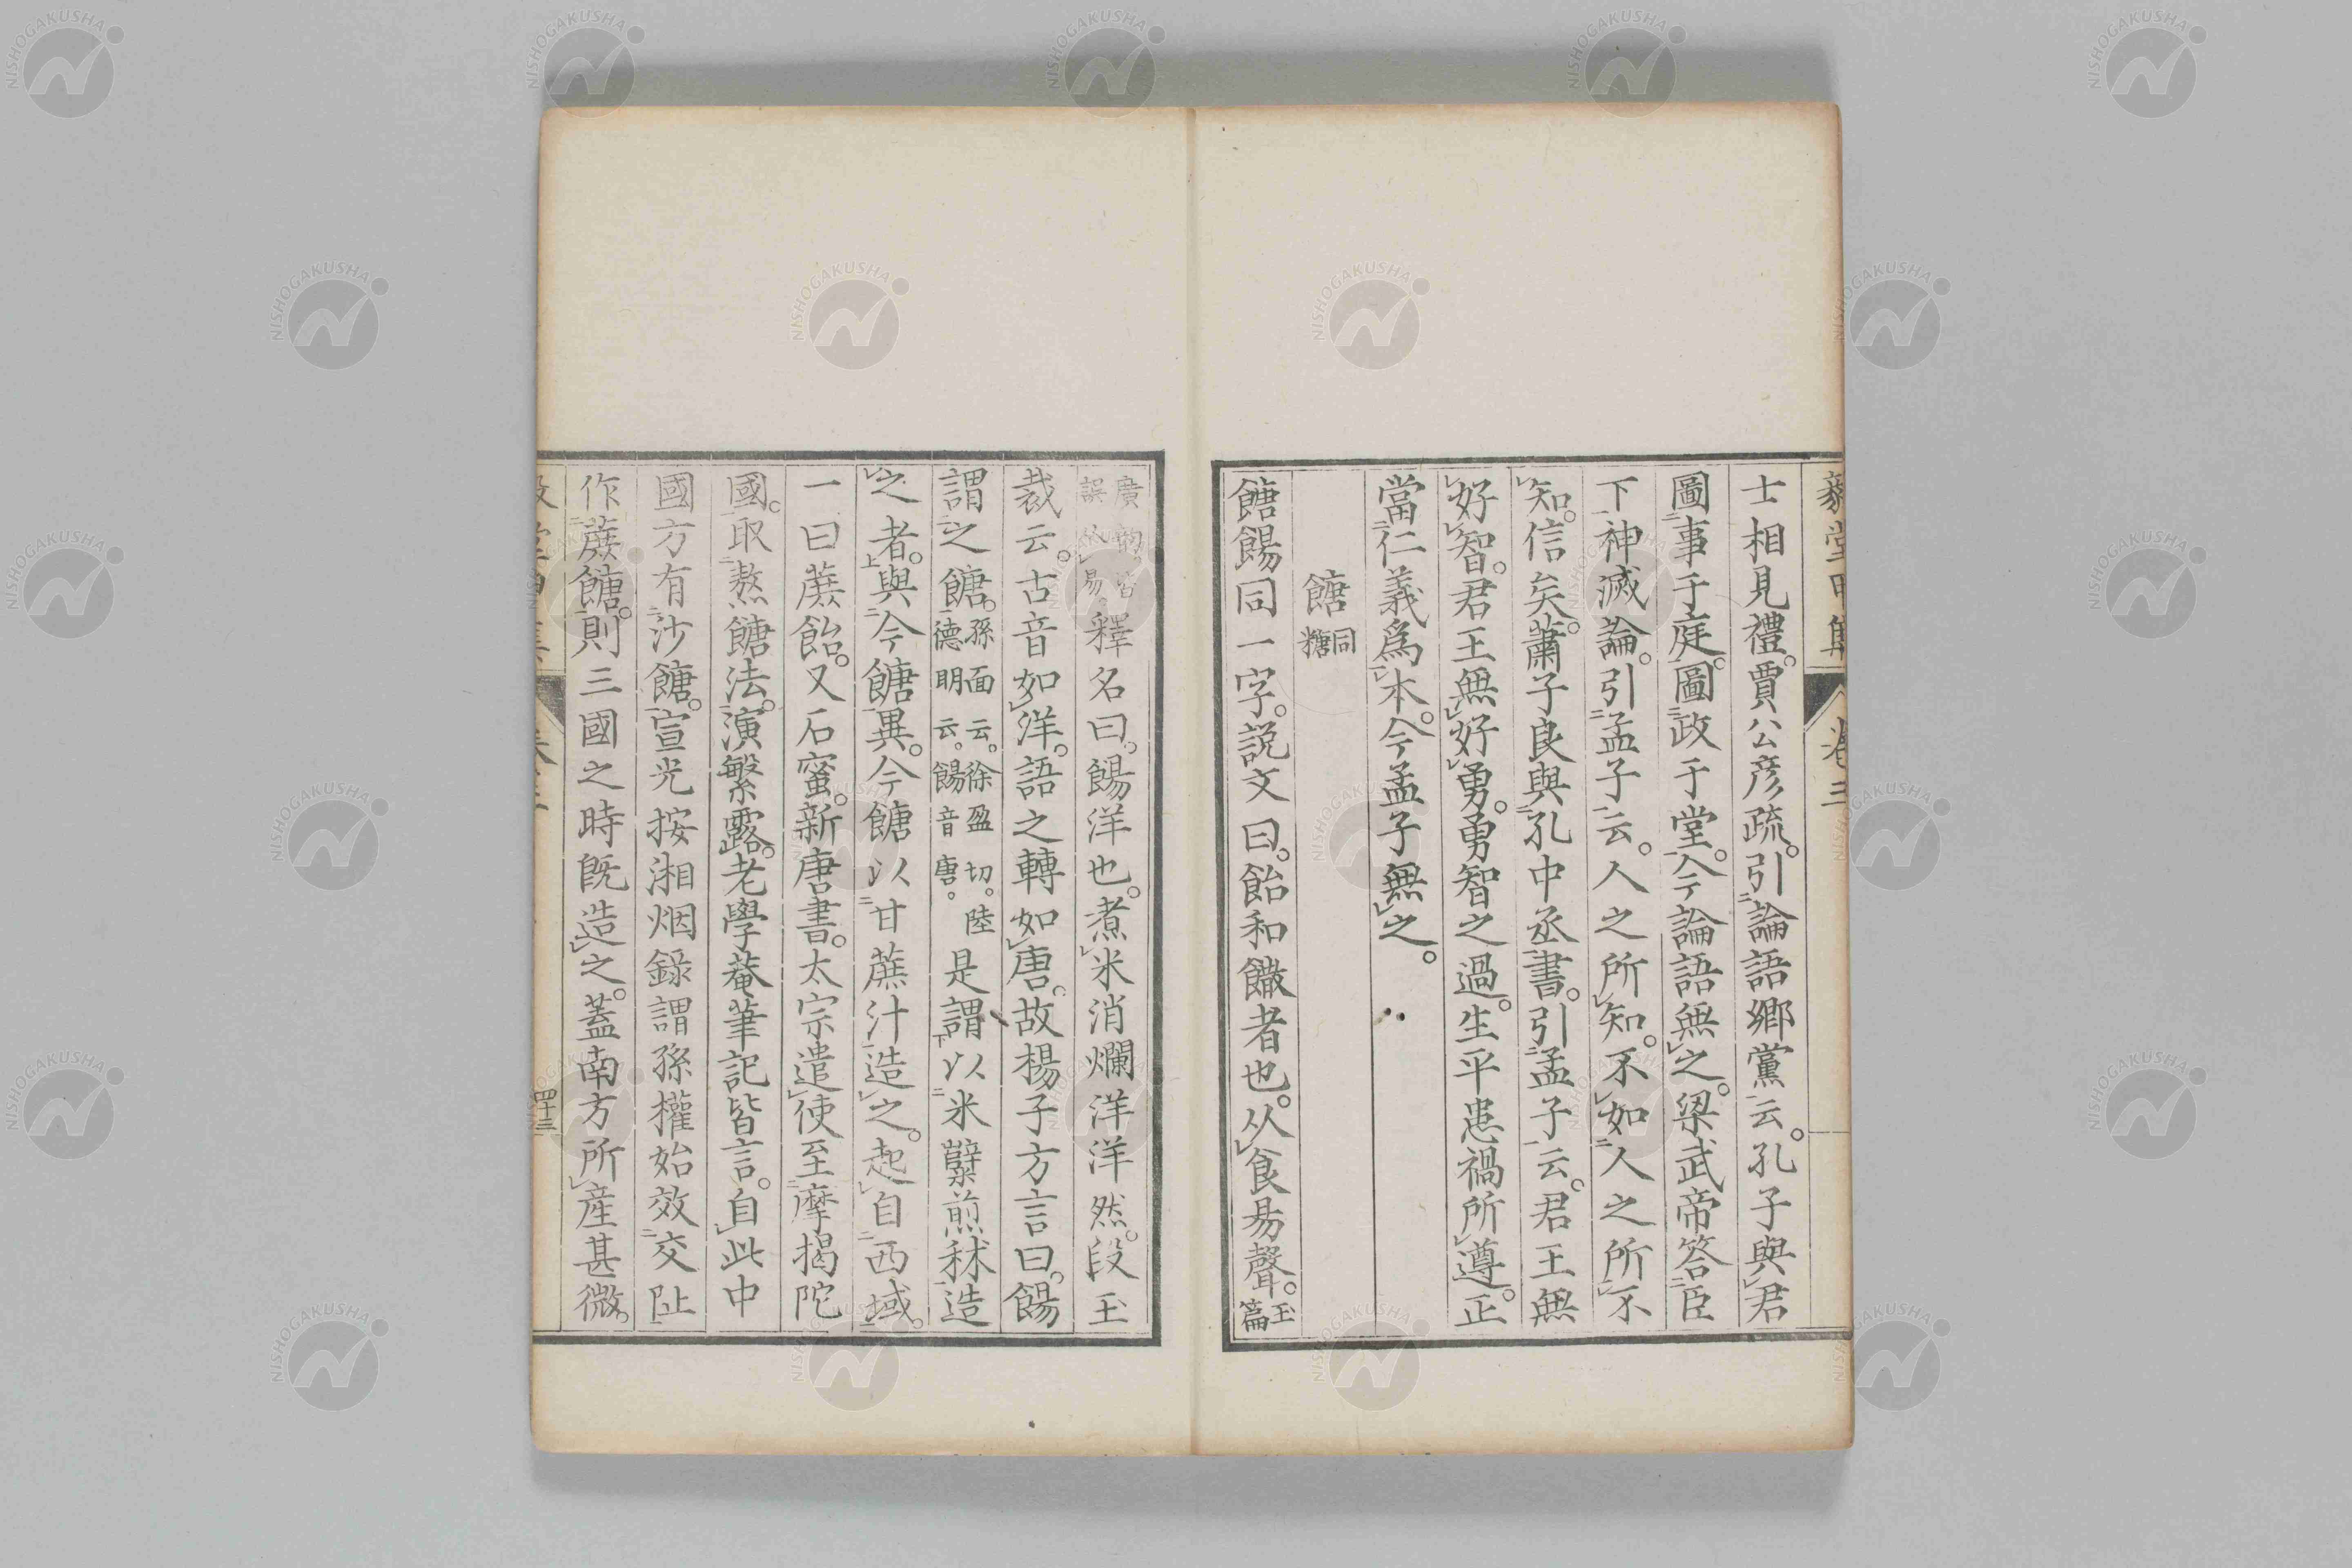 毅堂甲集 卷三
士相見禮。賈公彦疏。引論語鄉黨云。孔子與君
圖事于庭。圖政于堂。今論語無之。梁武帝答臣
下神滅論。引孟子云。人之所知。不如人之所不
知。信矣。蕭子良與孔中丞書。引孟子云。君王無
好智。君王無好勇。勇智之過。生平患禍所遵。正
當仁義爲本。今孟子無之。
餹 同糖
餹餳同一字。説文曰。飴和饊者也。从食昜聲。玉篇
廣韵。皆誤从易。釋名曰。餳洋也。煮米消爛洋洋然。段玉
裁云。古音如洋。語之轉如唐。故楊子方言曰。餳
謂之餹。孫面云。徐盈切。陸德明云。餳音唐。是謂以米糵煎秫造
之者。與今餹異。今餹以甘蔗汁造之。起自西域。
一曰蔗飴。又石蜜。新唐書。太宗遣使至摩揭陀
國。取熬餹法。演繁露。老學菴筆記皆言。自此中
國方有沙餹。宣光按湘烟錄謂孫權始效交阯
作蔗餹。則三國之時旣造之。蓋南方所産甚微。
四十三
NISHOGAKUSHA